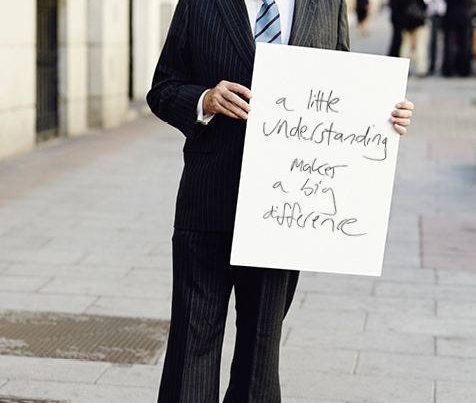 a little
understanding
makes
a big
difference